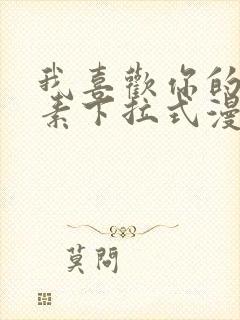 我喜歡你的
素下拉式漫
莫問